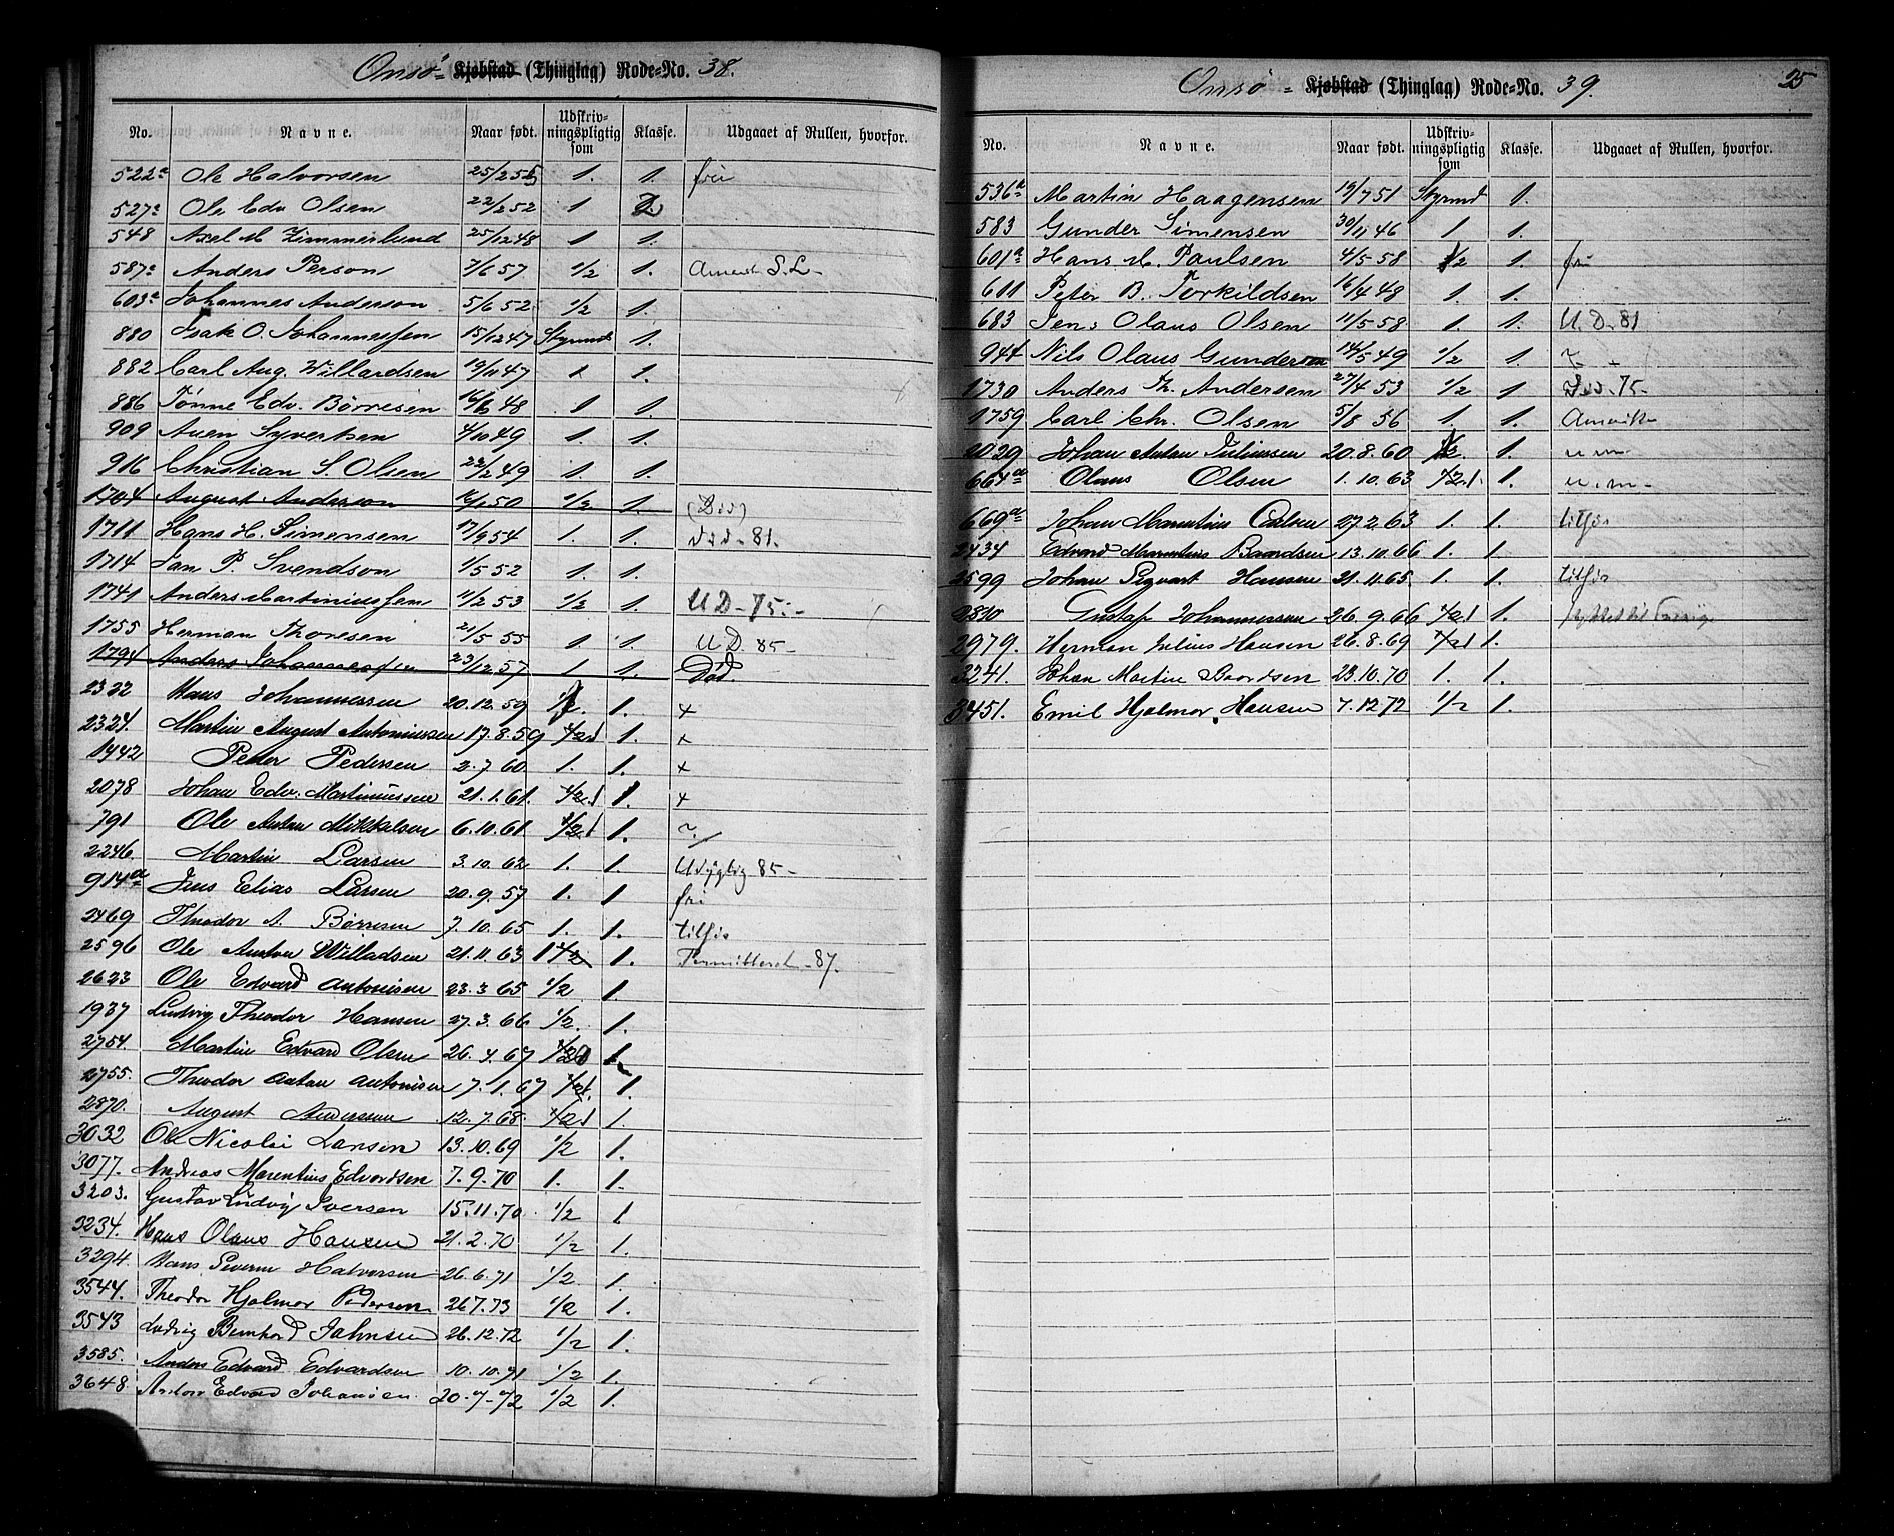 Onsö- Kjøbstad (Thinglag) Rode=No. 38.
No. Navne. Naar født. Udskriv-ningspligtig som Klasse. Udgaaet af Rullen, hvorfor.
522a Ole Halvorsen 25/2 55 1. 1. fri
527a Ole Edv Olsen 22/2 52 1
548 Axel M Zimmerlund 25/12 48 1 1.
587a Anders Person 7/6 57 1/2 1.
603a Johannes Anderson 5/6 52 1/2 1.
880 Isak O. Johannessen 15/12 47 Styrmd 1.
882 Carl Aug. Willardsen 19/11 47 1 1.
886 Tønne Edv. Börresen 16/6 48 1 1.
909 Aven Syvertsen 4/10 49 1 1.
916 Christian S. Olsen 22/2 49 1. 1.
1704 August Anderson 50 1/2 1. (Död)
1711 Hans H. Simensen 17/9 54 1. 1. död-81.
1714 Jan P. Svendson 1/5 52 1. 1.
1741 Anders Martiniussen 11/2 53 1/2 1. UD-75.-
1755 Herman Thoresen 21/5 55 1. 1. UD. 85-
1794 Anders Johannessen 23/12 57 1. 1. Död.
2322 Hans Johannessen 20.12.59 1. x
2324. Martin August Antoniussen 17.8.59 1/2 1 1. x
1442 Peter Pedersen 2.7.60 1. 1. x
2078 Johan Edv. Martiniussen 21.1.61. 1/2 1 1. x
791 Ole Anton Mikkelsen 6.10.61 1/2 1 1.
2246. Martin Larsen 3.10.62 1. 1. Udygtig 85-
914a Jens Elias Larsen 20.9.57 1. 1. fri
2469 Theodor A. Børresen 7.10.65 1. 1. tilfös
2596 Ole Anton Willadsen 21.11.63 1 1/2 1. 87.
2623 Ole Edvard Antonisen 23.3.65 1/2 1.
1937 Ludvig Theodor Hansen 27.3.66 1/2. 1.
2754. Martin Edvard Olsen 26.4.67 1/2 1.
2755. Theodor Anton Antonisen 7.1.67 1/2 1. 1.
2870. August Andersen 12.7.68. 1/2 1 1.
3032 Ole Nicolai Larsen 13.10.69 1/2 1.
3077. Andreas Marentius Edvardsen 7.9.70 1. 1.
3203. Gustav Ludvig Iversen 15.11.70. 1/2 1
3234. Hans Olaus Hansen 21.2.70 1/2 1.
3294. Hans Severin Halvorsen 26.6.71 1/2 1.
3544. Theodor Hjalmar Pedersen 26.7.73 1/2 1.
3543 Ludvig Bernhard Johnsen 26.12.72 1/2 1.
3585. Anders Edvard Edvardsen 10.10.71 1/2 1.
3648 Anton Edvard Johansen 20-7-72 1/2 1.
25
Onsö- Kjøbstad (Thinglag) Rode=No. 39.
No. Navne. Naar født. Udskriv-ningspligtig som Klasse. Udgaaet af Rullen, hvorfor.
536a Martin Haagensen 19/7 51 Styrmd 1.
583 Gunder Simensen 30/11 46 1 1.
601a Hans M. Paulsen 4/5-58 1/2 1. fri
611 Peter B. Torkildsen 16/4 48 1. 1.
683 Jens Olaus Olsen 11/5-58 1. 1. U.D-81
944 Nils Olaus Gundersen 14/5 49 1/2 1.
1730 Anders Th. Andersen 27/4 53 1/2 1. Död-75-
1759 Carl Chr. Olsen 5/8 56 1. 1. Amerika
2029 Johan Anton Juliussen 20.8.60 1/2 1.
664a Olaus Olsen 1.10.63 1/2.1. 1.
669a Johan Marentius Carlsen 27.2.63 1. 1. tilfös
2434 Edvard Marentius Baardsen 13.10.66 1. 1.
2599 Johan Sigvart Hansen 21.11.65 1. 1. tilfös
2810 Gustaf Johannessen 26.9.66 1/2 1 1. flyttet til
2979. Herman Julius Hansen 26.8.69 1/2 1 1.
3241. Johan Martin Baardsen 23.10.70 1. 1.
3451. Emil Hjalmar Hansen 7.12 72 1/2 1.